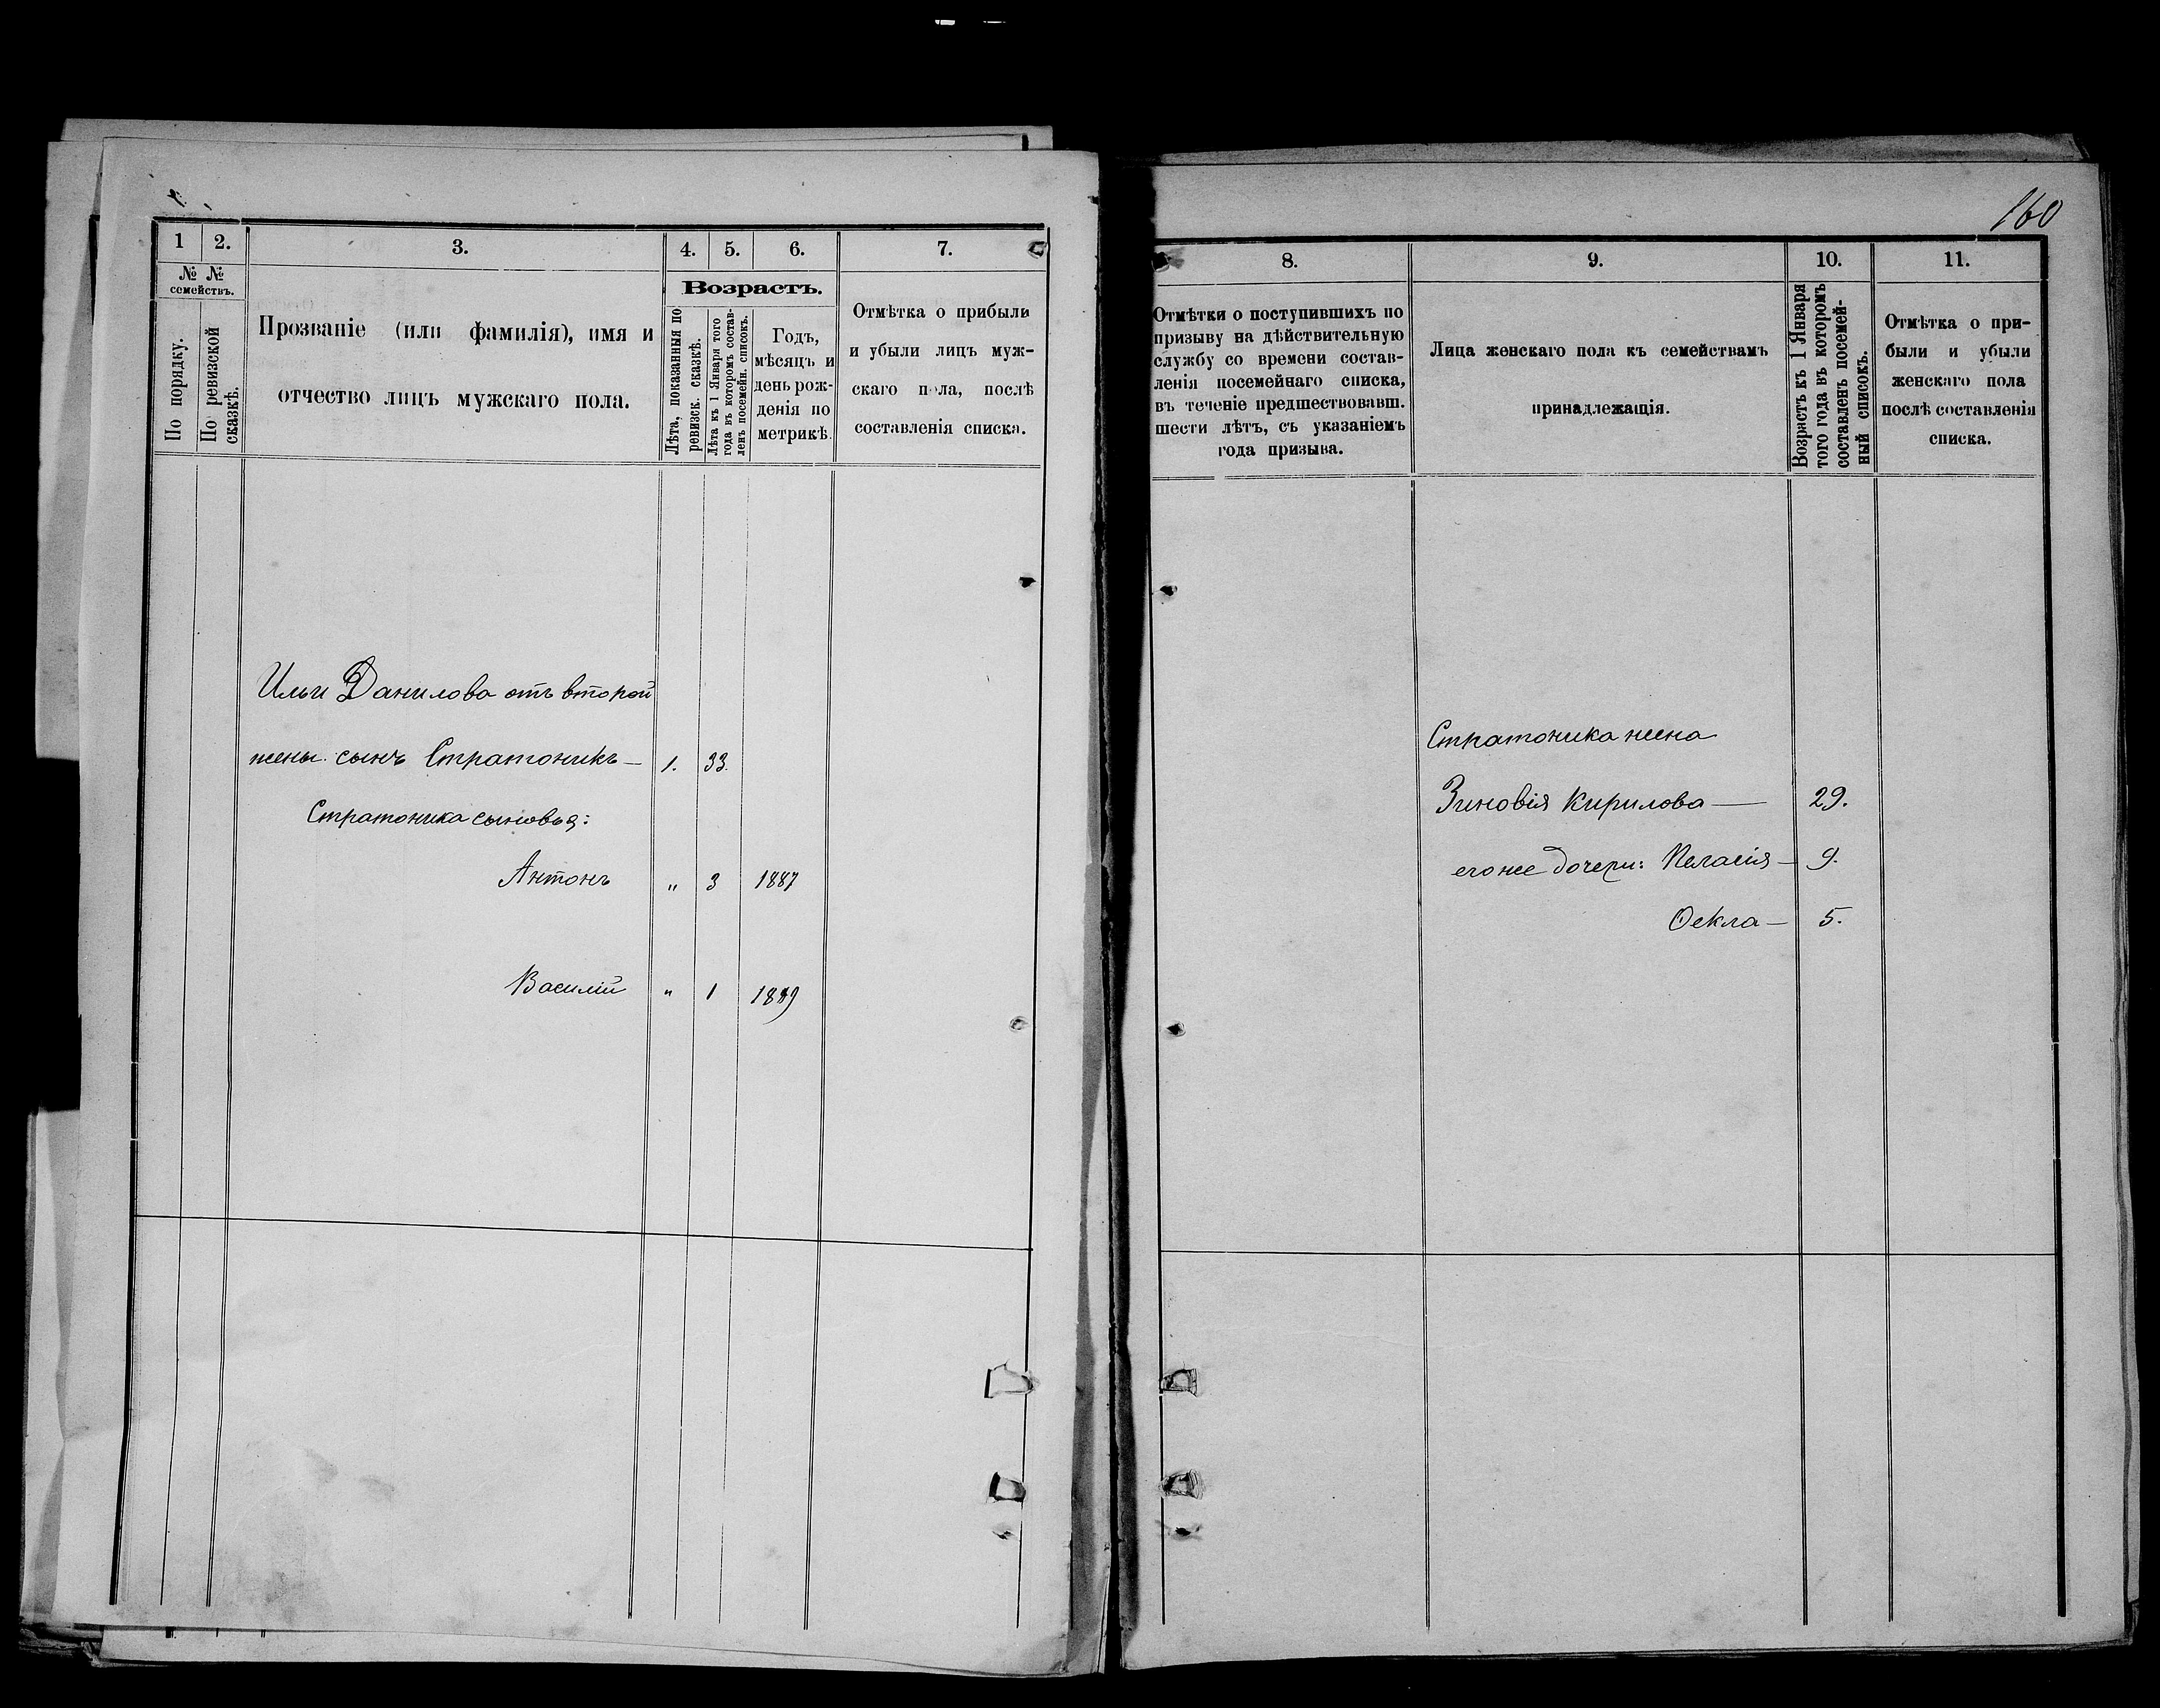 160
1
2.
3.
4.
5.
6.
7.
№ №
семействъ.
По порядку.
По ревизской
сказкѣ.
Прозваніе (или фамилія), имя и
отчество лицъ мужскаго пола.
Возрастъ.
Лѣта, показанныя по
ревизск. сказкѣ.
Лѣта къ 1 Января того
года въ которомъ состав-
ленъ посемейн. списокъ.
Годъ,
мѣсяцъ и
день рож-
денія по
метрикѣ.
Отмѣтка о прибыли
и убыли лицъ муж-
скаго пола, послѣ
составленія списка.
Ильи Данилова отъ второй
жены сынъ Стратоникъ — 1. 33.
Стратоника сыновья:
Антонъ " 3 1887
Василій " 1 1889
8.
9.
10.
11.
Отмѣтки о поступившихъ по
призыву на дѣйствительную
службу со времени состав-
ленія посемейнаго списка,
въ теченіе предшествовавш.
шести лѣтъ, съ указаніемъ
года призыва.
Лица женскаго пола къ семействамъ
принадлежащія.
Возрастъ къ 1 Января
того года въ которомъ
составленъ посемей-
ный списокъ.
Отмѣтка о при-
были и убыли
женскаго пола
послѣ составленія
списка.
Стратоника жена
Зиновія Кирилова — 29.
его же дочери: Пелагія — 9.
Ѳекла — 5.